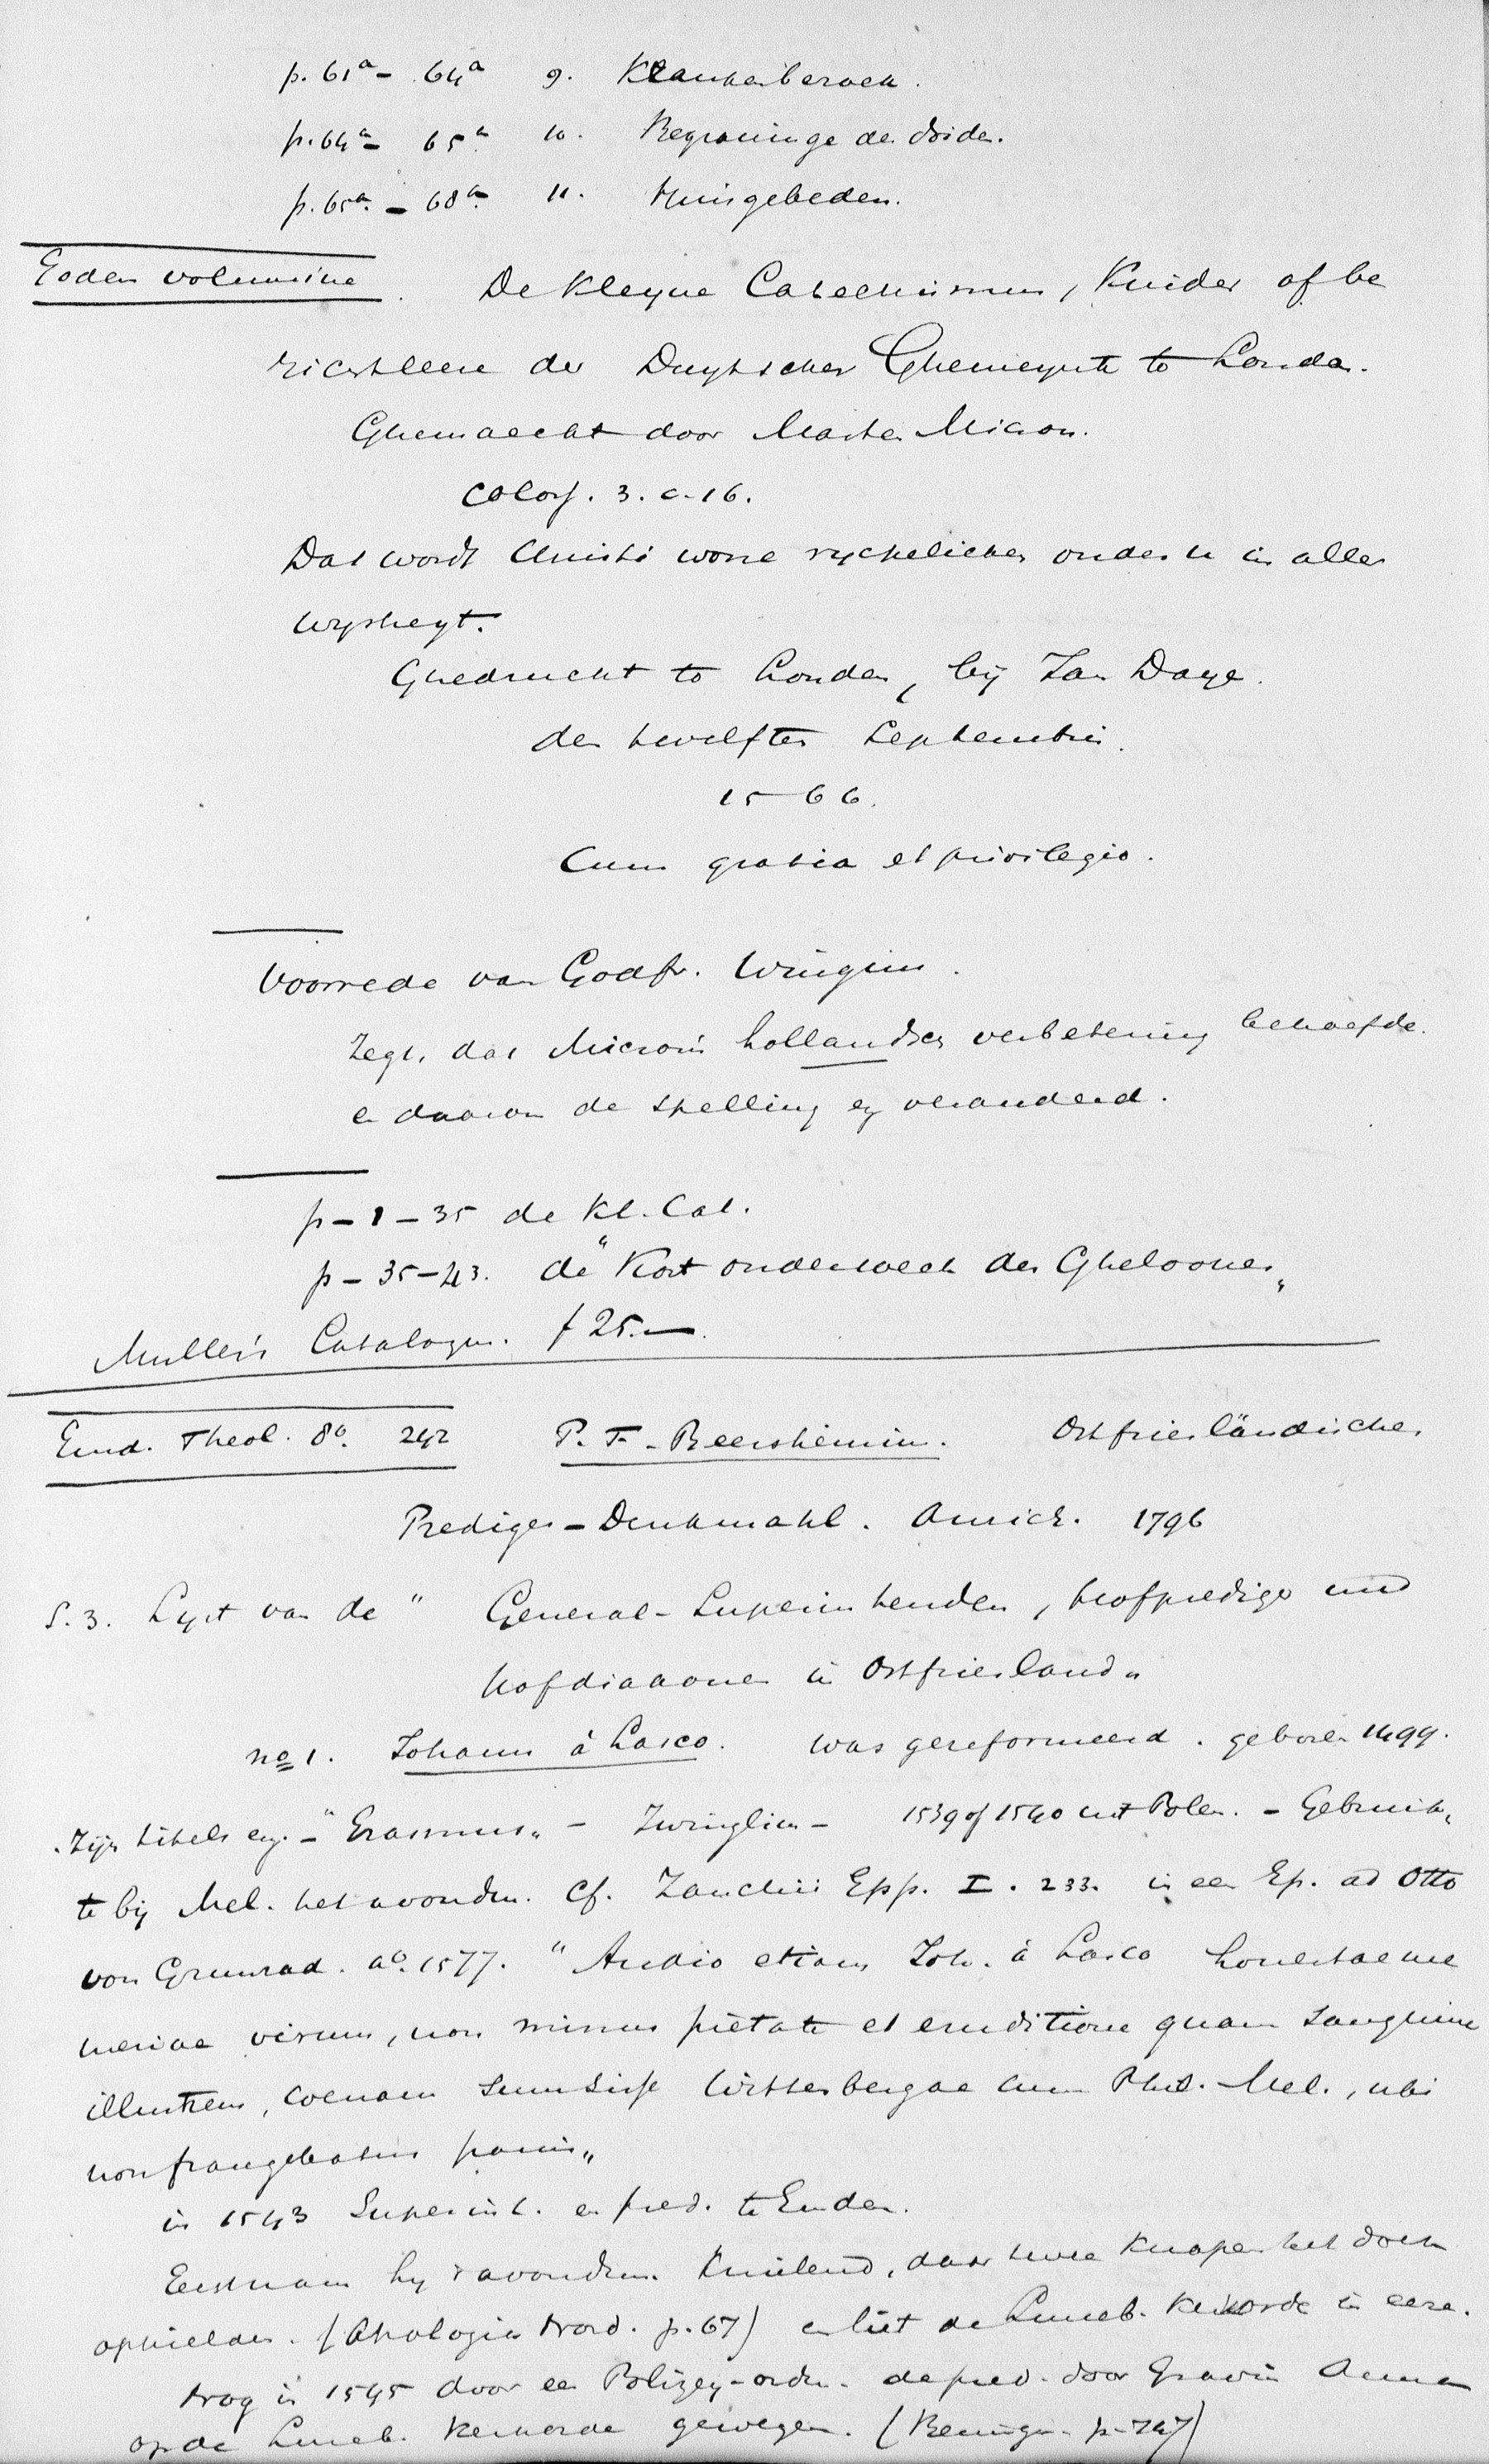 p. 61a - 64a 9. Krankenbezoek.
p. 64a - 65a 10. Begravinge de doiden.
p. 65a. - 68a. 11. Huisgebeden.
Eodem volumine. De Kleyne Catechismus, Kinder of be
richtleere der Duytscher Ghemeynte te Londen.
Ghemaeckt door Marten Micron.
Coloss. 3. c. 16.
Dat wordt Christi wone ryckelicken onder u in aller
wysheyt.
Ghedruckt te Londen, bij Jan Daye.
den twelfsten Septembris.
1566.
Cum gratia et privilegio.
Voorrede van Godfr. Wingius.
Zegt, dat Micron's hollandsch verbetering behoefde.
en daarom de spelling enz veranderd.
p - 1 - 35 de Kl. Cat.
p - 35 - 43. de "Kort onderzoek des Gheloovens„
Muller's Catalogus. f 25.—.
Emd. Theol. 8o. 242 P. F. Reershemius. Ostfriesländisches
Prediger-Denkmahl. Aurich. 1796
S. 3. Lyst van de " General-Superintenden, hofprediger und
hofdiaconen in Ostfriesland„
no 1. Johann à Lasco. was gereformeerd. geboren 1499.
Zijn titels enz. - "Erasmus„ - Zwinglius - 1539 of 1540 uit Polen. - Gebruik„
te bij Mel. het avondm. Cf. Zanchii Epp. I. 233. in een Ep. ad Otto
von Grunrad. ao. 1577. "Audio etiam Joh. à Lasco honestae me
moriae virum, non minus pietate et eruditione quam sanguine
illustrem, coenam sumsisse Wittenbergae cum Phil. Mel., ubi
non frangebatur panis„
in 1543 Superint. en pred. te Emden.
Eerst nam hy 't avondm. knielend, daar twee knapen het doek
ophielden. (Apologia Nord. p. 67) en liet de Luneb. Kekorde in eere.
Nog in 1545 door een Polizey-ordn. de pred. door Gravin Anna
op de Luneb. Kerkorde gewezen. (Beninga p. 747)